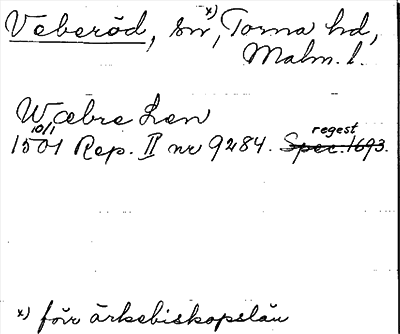 Veberöd, sn, x) Torna hd,
Malm. l.
Wæbre Læn
10/1
1501 Rep. II nr 9284. regest Spec. 1693.
x) förr ärkebiskopslän